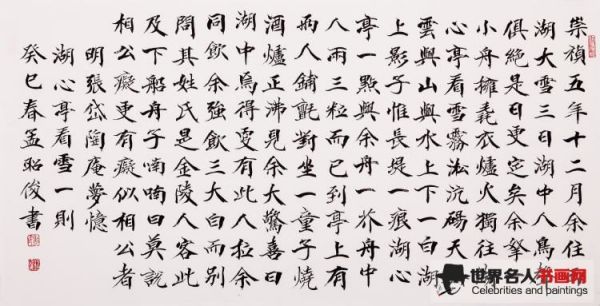 崇禎五年十二月余住
湖大雪三日湖中人鳥
俱絕是日更定矣余拏
小舟擁毳衣爐火獨往
心亭看雪霧凇沆碭天
雲與山與水上下一白湖
上影子惟長堤一痕湖心
亭一點與余舟一芥舟中
人兩三粒而已到亭上有
兩人鋪氈對坐一童子燒
酒爐正沸見余大驚喜曰
湖中焉得更有此人拉余
同飲余強飲三大白而別
問其姓氏是金陵人客此
及下船舟子喃喃曰莫說
相公癡更有癡似相公者
明張岱陶庵夢憶
湖心亭看雪一則
癸巳春孟昭俊書
世界名人书画网
Celebrities and paintings